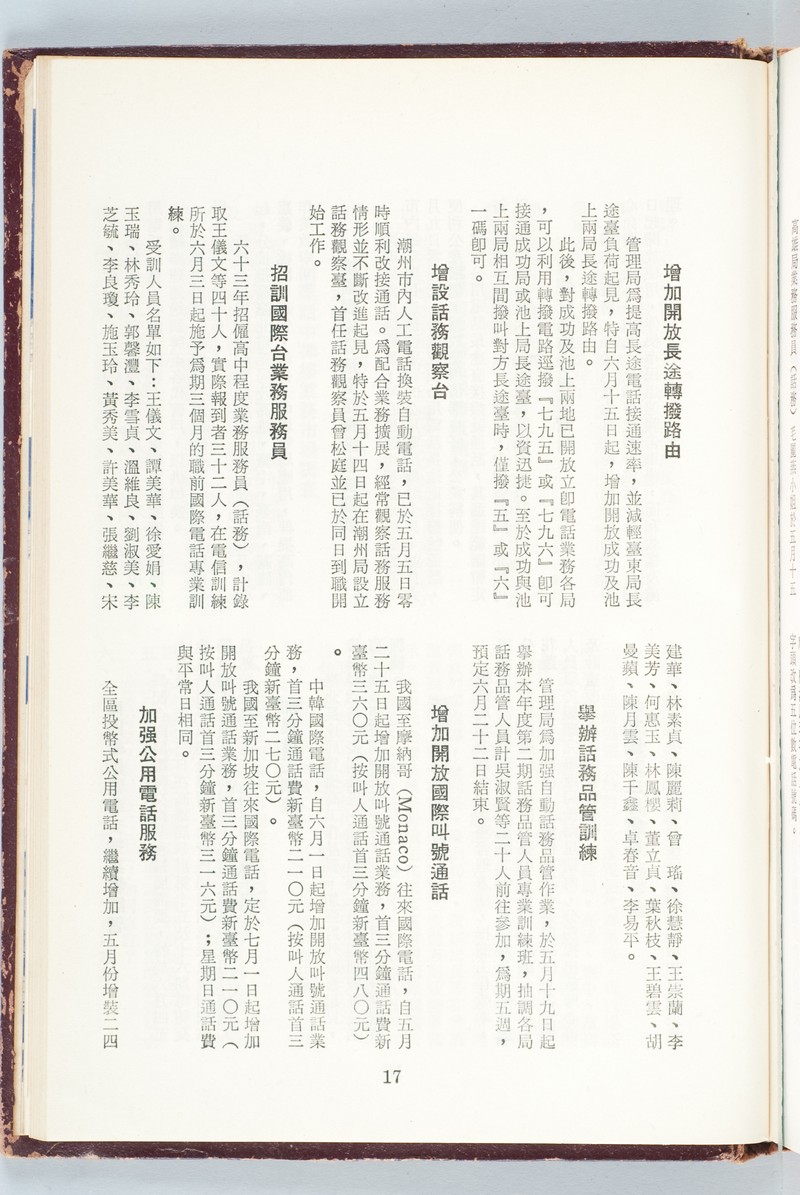 增加開放長途轉撥路由
管理局爲提高長途電話接通速率，並減輕臺東局長
途臺負荷起見，特自六月十五日起，增加開放成功及池
上兩局長途轉撥路由。
此後，對成功及池上兩地已開放立卽電話業務各局
，可以利用轉撥電路逕撥『七九五』或『七九六』卽可
接通成功局或池上局長途臺，以資迅捷。至於成功與池
上兩局相互間撥叫對方長途臺時，僅撥『五』或『六』
一碼卽可。
增設話務觀察台
潮州市內人工電話換裝自動電話，已於五月五日零
時順利改接通話。爲配合業務擴展，經常觀察話務服務
情形並不斷改進起見，特於五月十四日起在潮州局設立
話務觀察臺，首任話務觀察員曾松庭並已於同日到職開
始工作。
招訓國際台業務服務員
六十三年招僱高中程度業務服務員（話務），計錄
取王儀文等四十人，實際報到者三十二人，在電信訓練
所於六月三日起施予爲期三個月的職前國際電話專業訓
練。
受訓人員名單如下：王儀文、譚美華、徐愛娟、陳
玉瑞、林秀玲、郭馨灃、李雪貞、溫維良、劉淑美、李
芝毓、李良瓊、施玉玲、黃秀美、許美華、張繼慈、宋
建華、林素貞、陳麗莉、曾　瑤、徐慧靜、王崇蘭、李
美芳、何惠玉、林鳳櫻、董立貞、葉秋枝、王碧雲、胡
曼蘋、陳月雲、陳千鑫、卓春音、李易平。
舉辦話務品管訓練
管理局爲加强自動話務品管作業，於五月十九日起
舉辦本年度第二期話務品管人員專業訓練班，抽調各局
話務品管人員計吳淑賢等二十人前往參加，爲期五週，
預定六月二十二日結束。
增加開放國際叫號通話
我國至摩納哥（Monaco）往來國際電話，自五月
二十五日起增加開放叫號通話業務，首三分鐘通話費新
臺幣三六〇元（按叫人通話首三分鐘新臺幣四八〇元）
。
中韓國際電話，自六月一日起增加開放叫號通話業
務，首三分鐘通話費新臺幣二一〇元（按叫人通話首三
分鐘新臺幣二七〇元）。
我國至新加坡往來國際電話，定於七月一日起增加
開放叫號通話業務，首三分鐘通話費新臺幣二一〇元（
按叫人通話首三分鐘新臺幣三一六元）；星期日通話費
與平常日相同。
加强公用電話服務
全區投幣式公用電話，繼續增加，五月份增裝二四
17